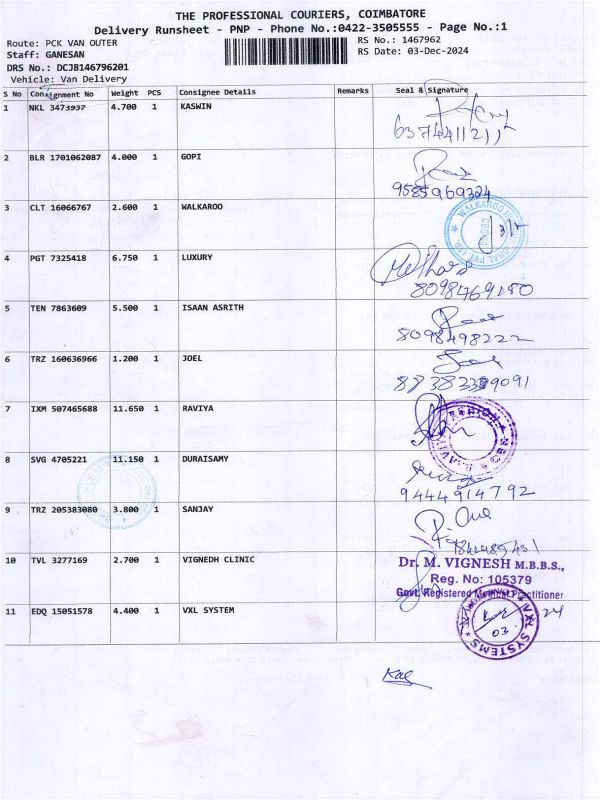 THE PROFESSIONAL COURIERS, COIMBATORE
Delivery Runsheet - PNP - Phone No.:0422-3505555 - Page No.:1
Route: PCK VAN OUTER
RS No.: 1467962
Staff: GANESAN
RS Date: 03-Dec-2024
DRS No.: DCJB146796201
Vehicle: Van Delivery
S No Consignment No Weight PCS Consignee Details Remarks Seal & Signature
1 NKL 3473937 4.700 1 KASWIN
2 BLR 1701062087 4.000 1 GOPI
9585969324
3 CLT 16066767 2.600 1 WALKAROO
4 PGT 7325418 6.750 1 LUXURY
8098469150
5 TEN 7863609 5.500 1 ISAAN ASRITH
8098498222
6 TRZ 160636966 1.200 1 JOEL
7 IXM 507465688 11.650 1 RAVIYA
8 SVG 4705221 11.150 1 DURAISAMY
9444914792
9 TRZ 205383080 3.800 1 SANJAY
10 TVL 3277169 2.700 1 VIGNEDH CLINIC
Dr. M. VIGNESH M.B.B.S.,
Reg. No: 105379
Govt. Registered Medical Practitioner
11 EDQ 15051578 4.400 1 VXL SYSTEM
VXL SYSTEMS
03
24